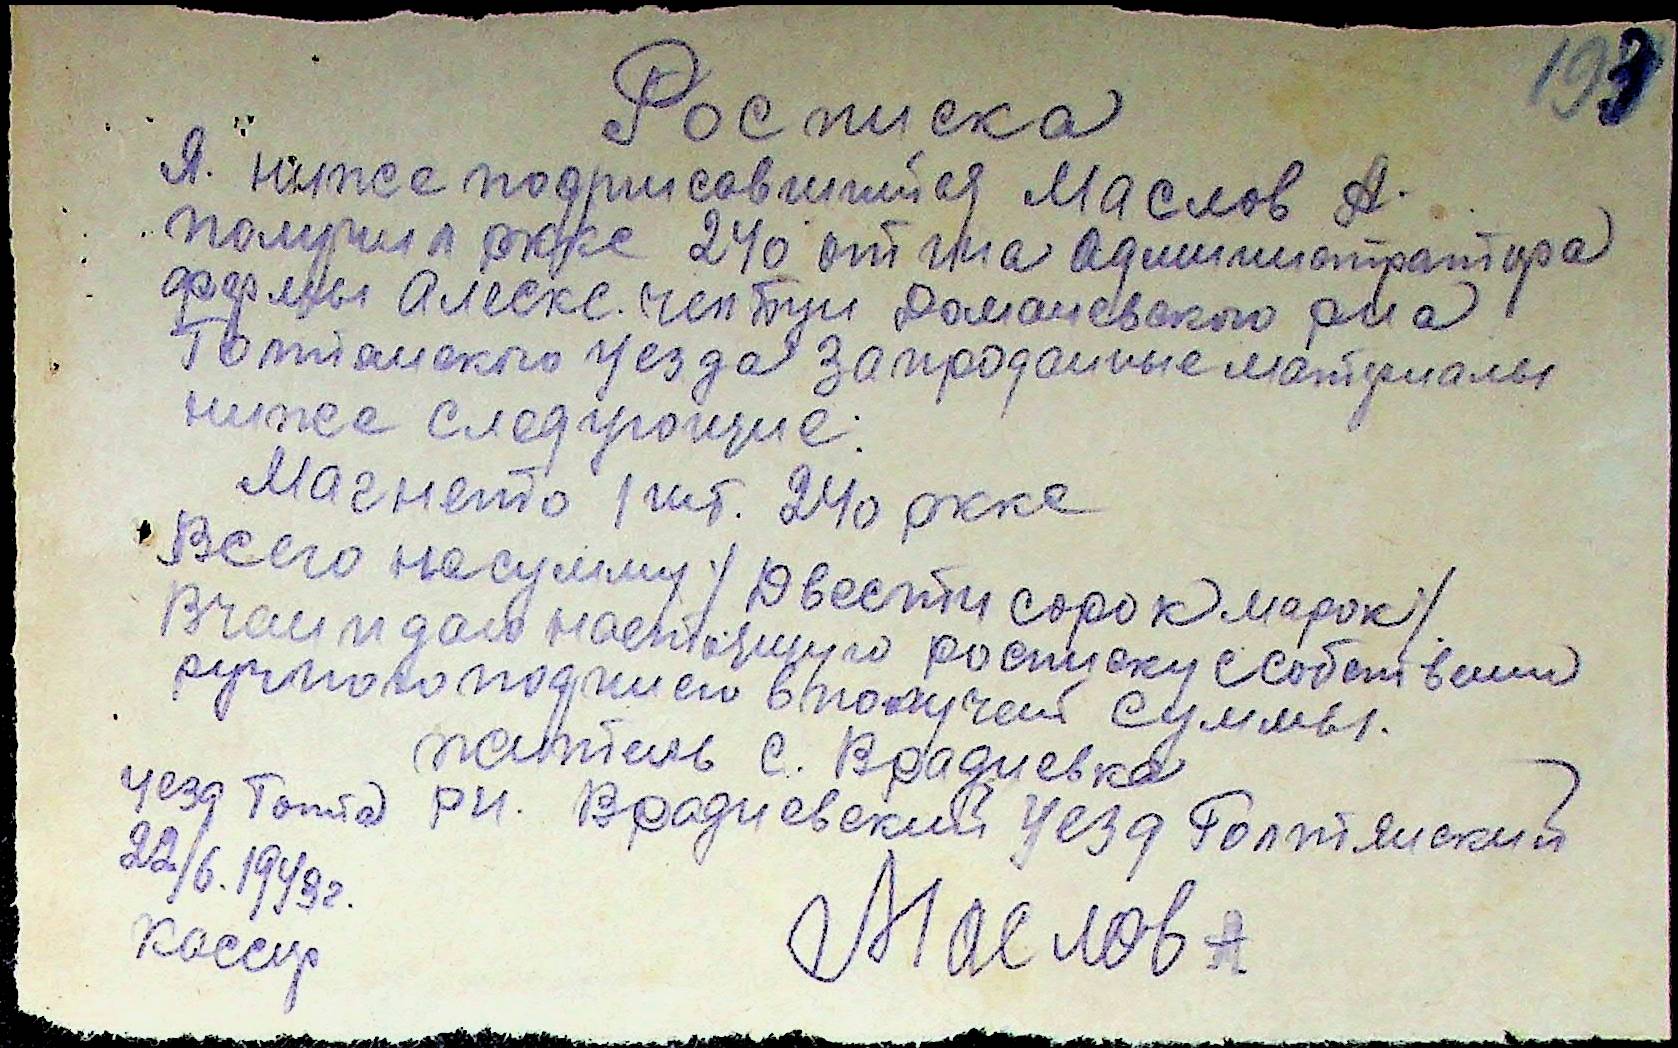 193
Росписка
Я. ниже подписавшийся Маслов А.
получил ркке 240 от г-на Администратора
фермы Алекс. Домоневского р-на
Голтянского уезда За проданные материалы
ниже следующие:
Магнето 1 шт. 240 ркке
Всего на сумму / Двести сорок марок /.
В чем и даю настоящую росписку с собственно
ручною подписю в получен суммы.
житель с. Врадиевка
уезд Голта рн. Врадиевский уезд Голтянский
22/6. 1943г.
Кассир Маслов А